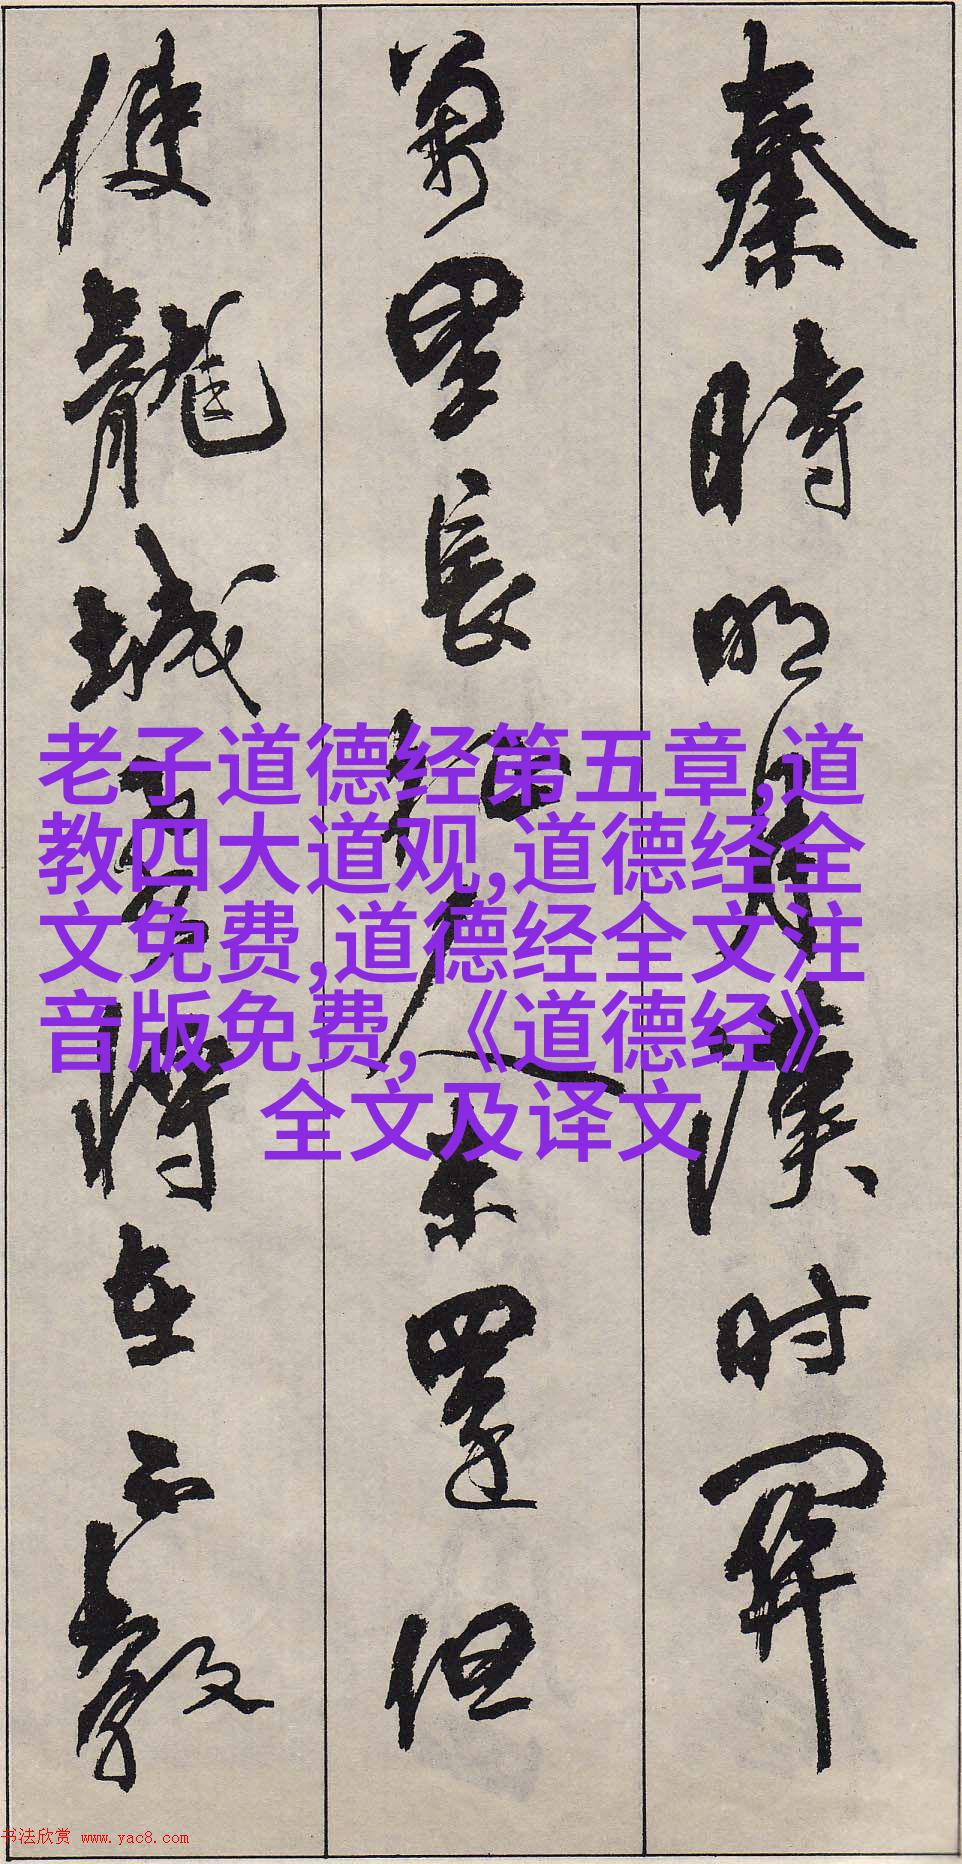 秦時明月漢时關
萬里長征人未還但
使龍城飛將在不教
老子道德经第五章,道
教四大道观,道德经全
文免费,道德经全文注
音版免费,《道德经》
全文及译文
书法欣赏 www.yac8.com